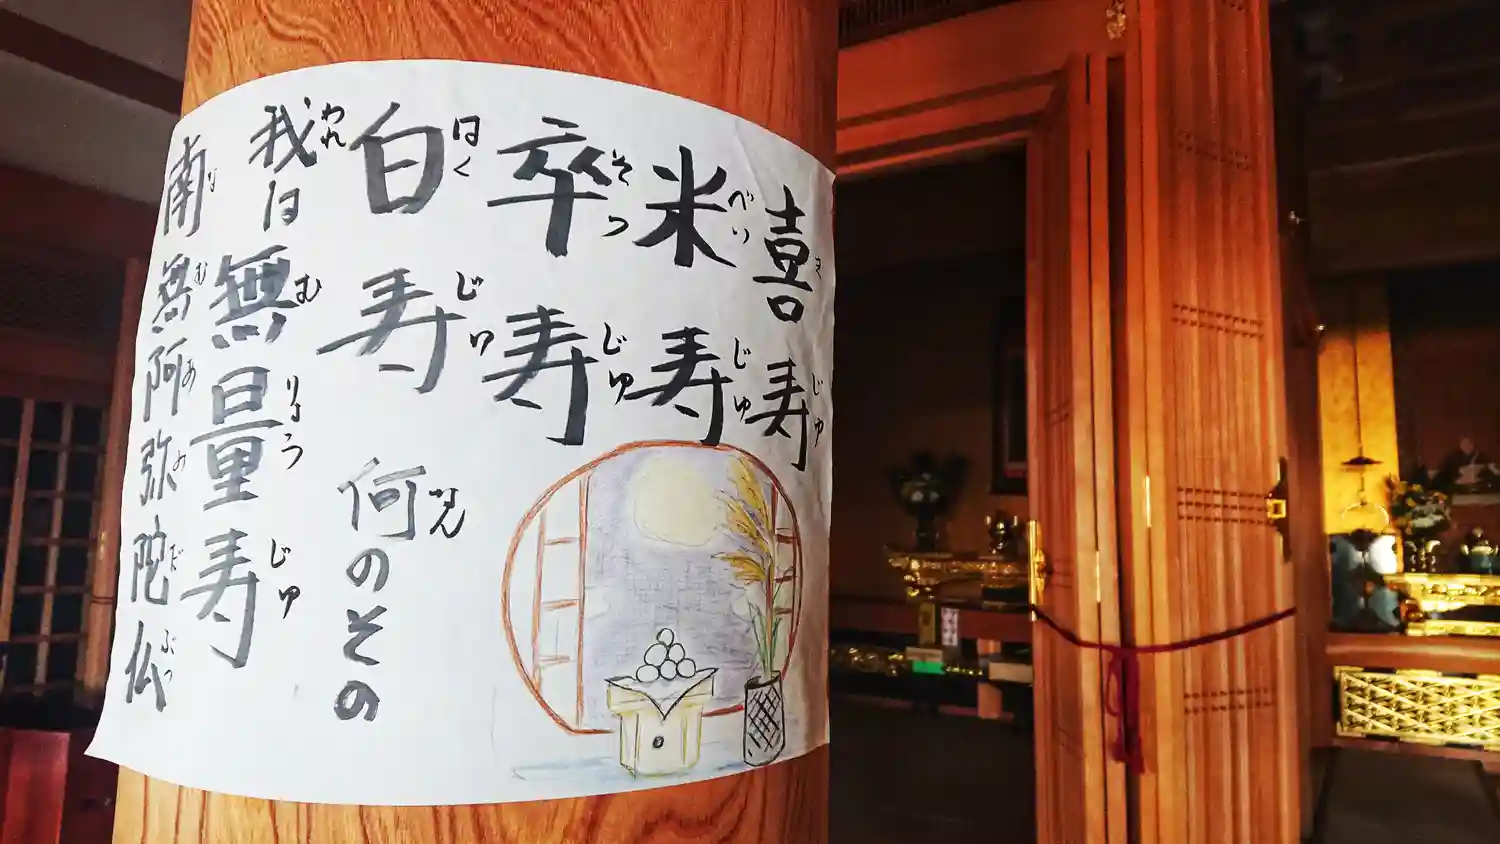 喜寿
きじゅ
米寿
べいじゅ
卒寿
そつじゅ
白寿
はくじゅ
何のその
なん
我は
われ
無量寿
むりょうじゅ
南無阿弥陀仏
なむあみだぶつ